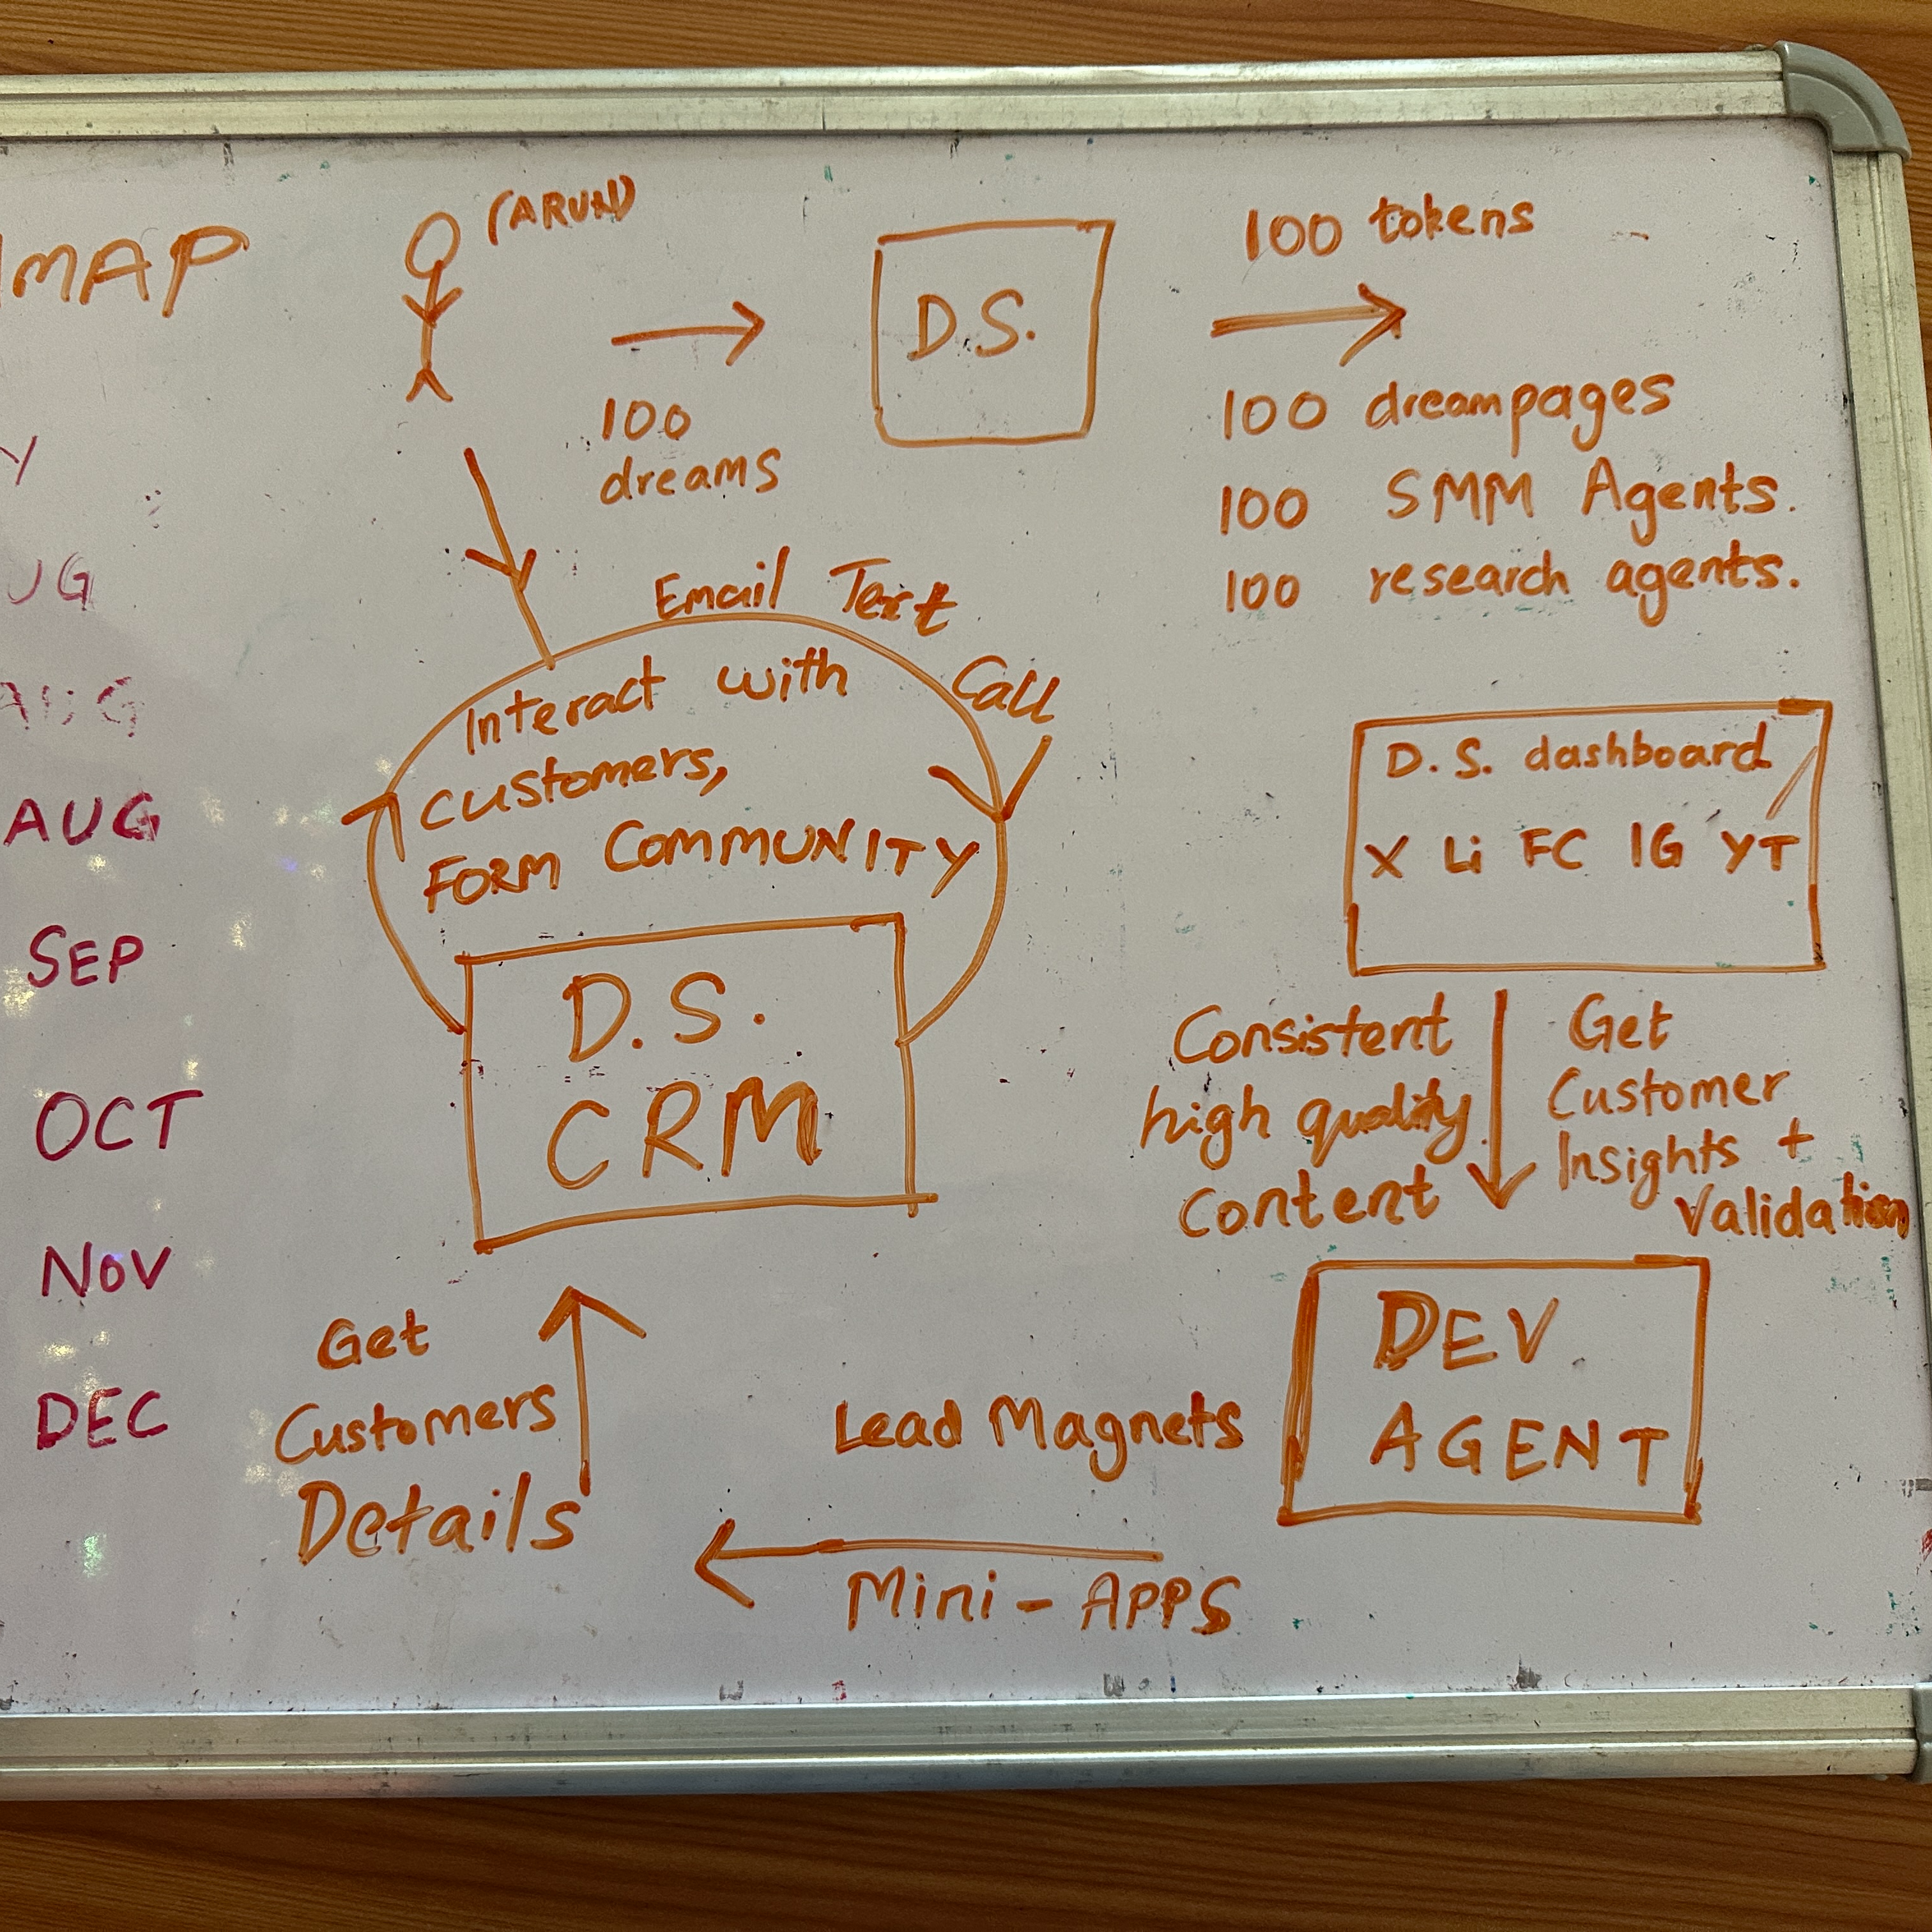 MAP
(ARUN)
100
dreams
D.S.
100 tokens
100 dreampages
100 SMM Agents.
100 research agents.
Y
UG
AUG
AUG
SEP
OCT
NOV
DEC
Email Text
Call
Interact with
customers,
FORM COMMUNITY
D.S.
CRM
D.S. dashboard
X Li FC IG YT
Consistent
high quality
content
Get
Customer
Insights +
Validation
DEV
AGENT
Lead Magnets
Mini-APPS
Get
Customers
Details